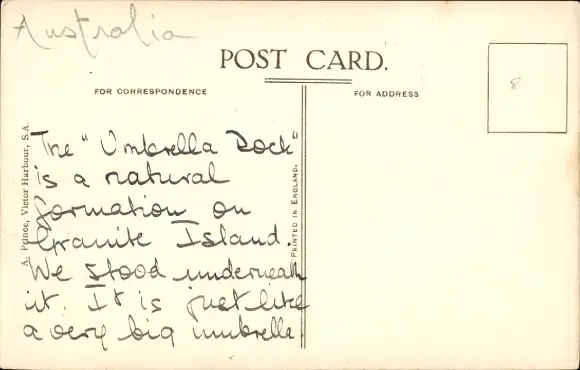 Australia
POST CARD.
FOR CORRESPONDENCE
FOR ADDRESS
8
A. Prince, Victor Harbour, S.A.
PRINTED IN ENGLAND.
The "Umbrella Rock"
is a natural
formation on
Granite Island.
We stood underneath
it. It is just like
a very big umbrella.